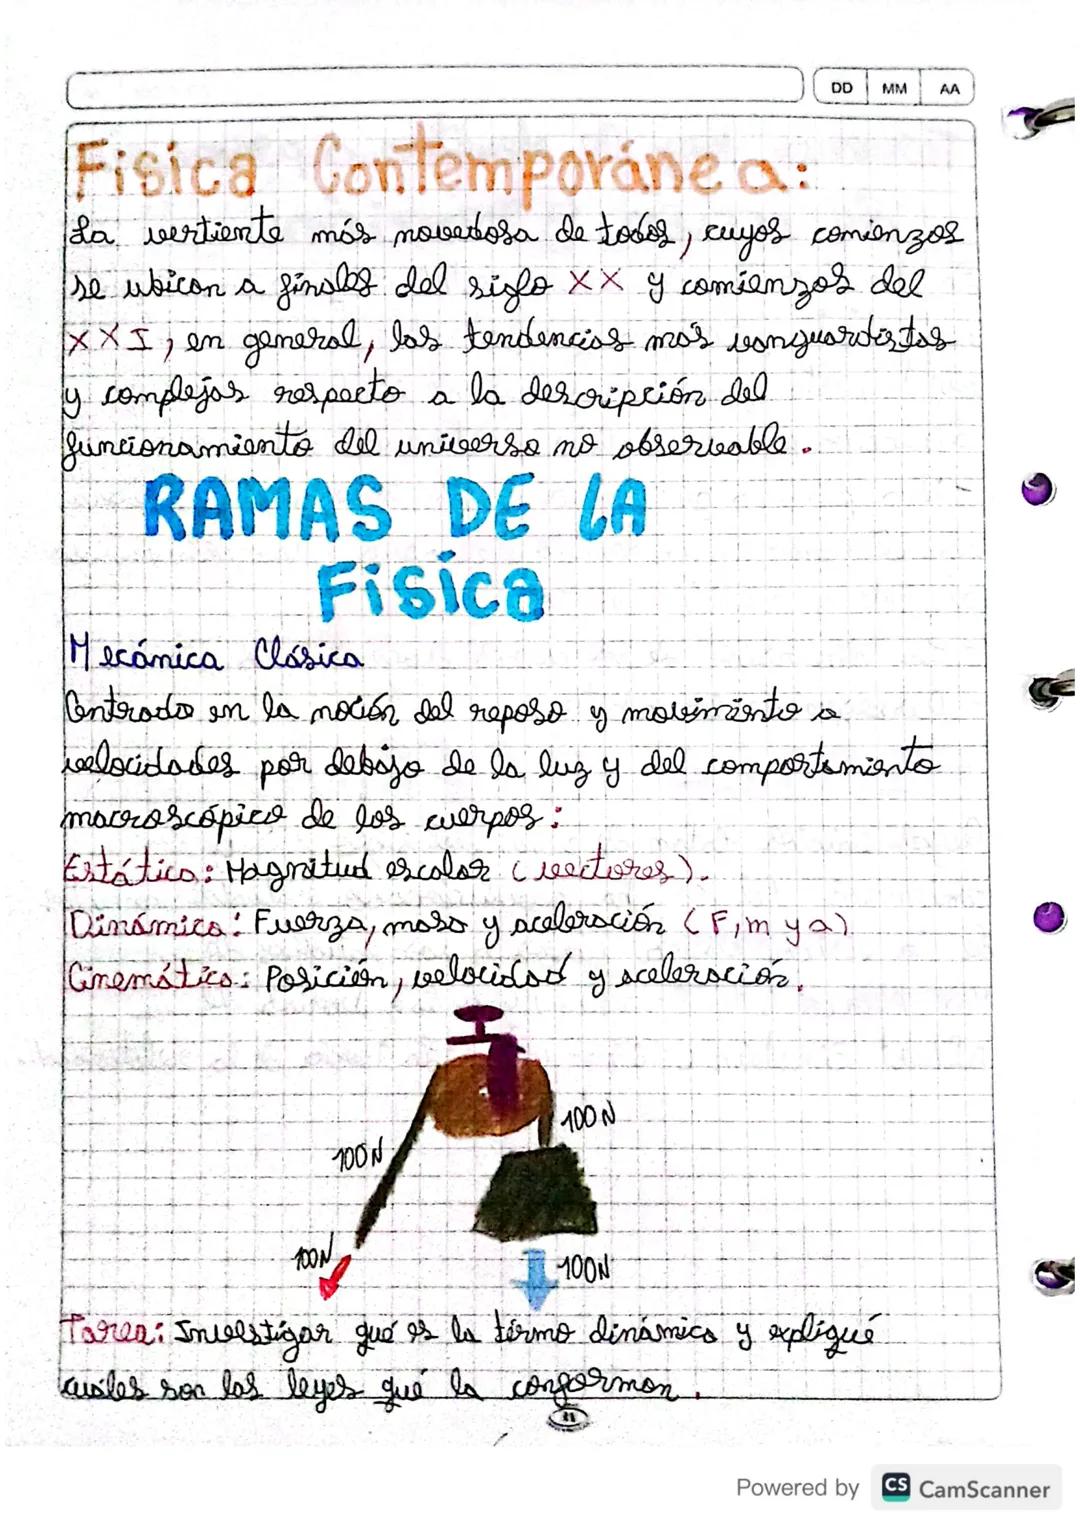 DD MM AA
Fisica Contemporánea:
La vertiente más novedosa de todas, cuyos comienzos
se ubican a finales del siglo XX y comienzos del
XXI, en general, las tendencias más vanguardistas
y complejas respecto a la descripción del
funcionamiento del universo no observable.
RAMAS DE LA
Física
Mecánica Clásica
Centrada en la noción del reposo y movimiento a
velocidades por debajo de la luz y del comportamiento
macroscópico de los cuerpos:
Estática: Magnitud escalar (vectores).
Dinámica: Fuerza, masa y aceleración (F, m y a)
Cinemática: Posición, velocidad y aceleración.
100N
100N
100N
100N
Tarea: Investigar qué es la térmo dinámica y expliqué
cuáles son las leyes qué la conforman.
11
Powered by CS CamScanner